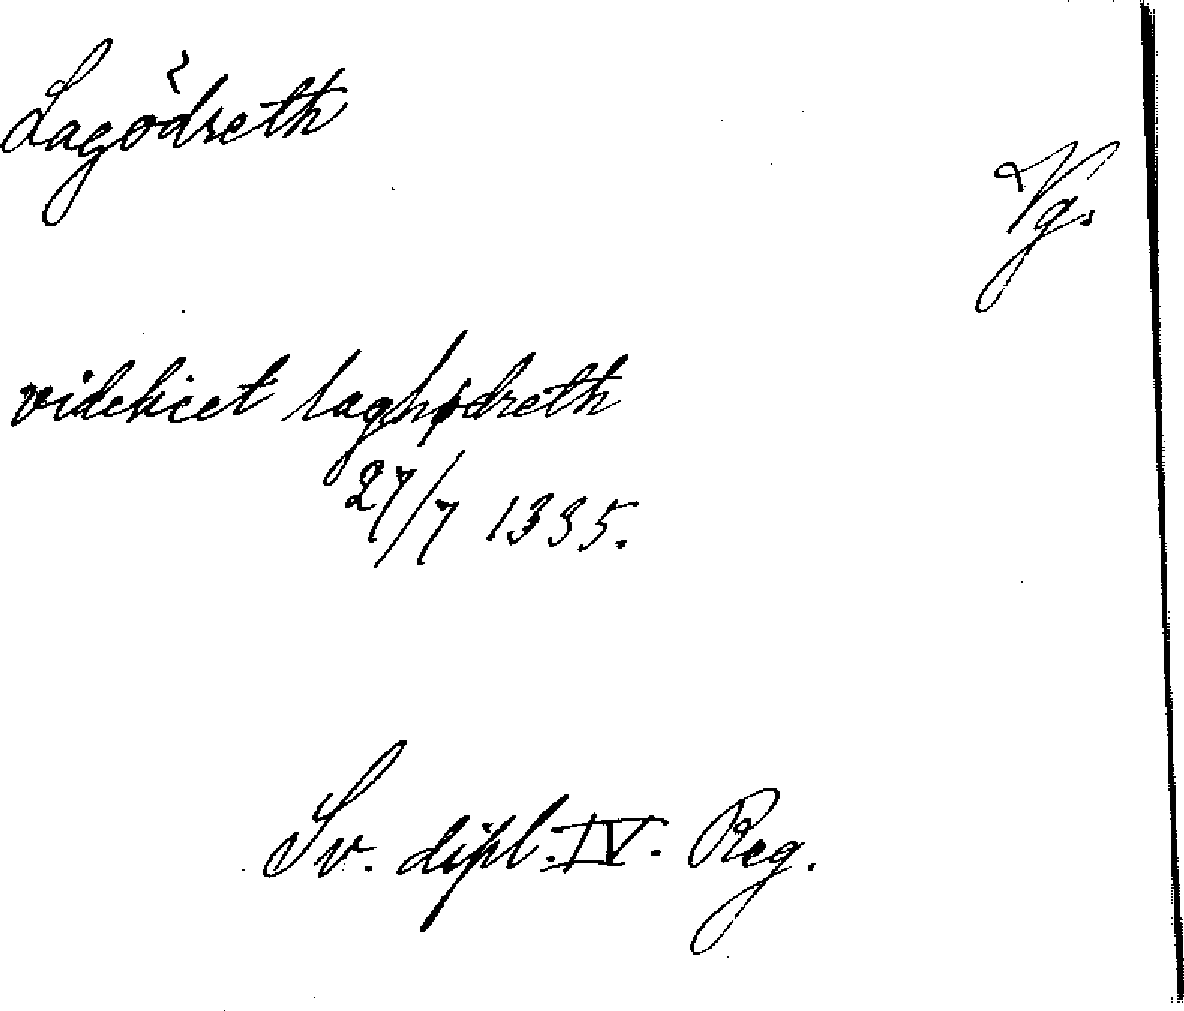 Lagödreth
Vg.
videlicet laghødreth
27/7 1335.
Sv. dipl. IV. Reg.